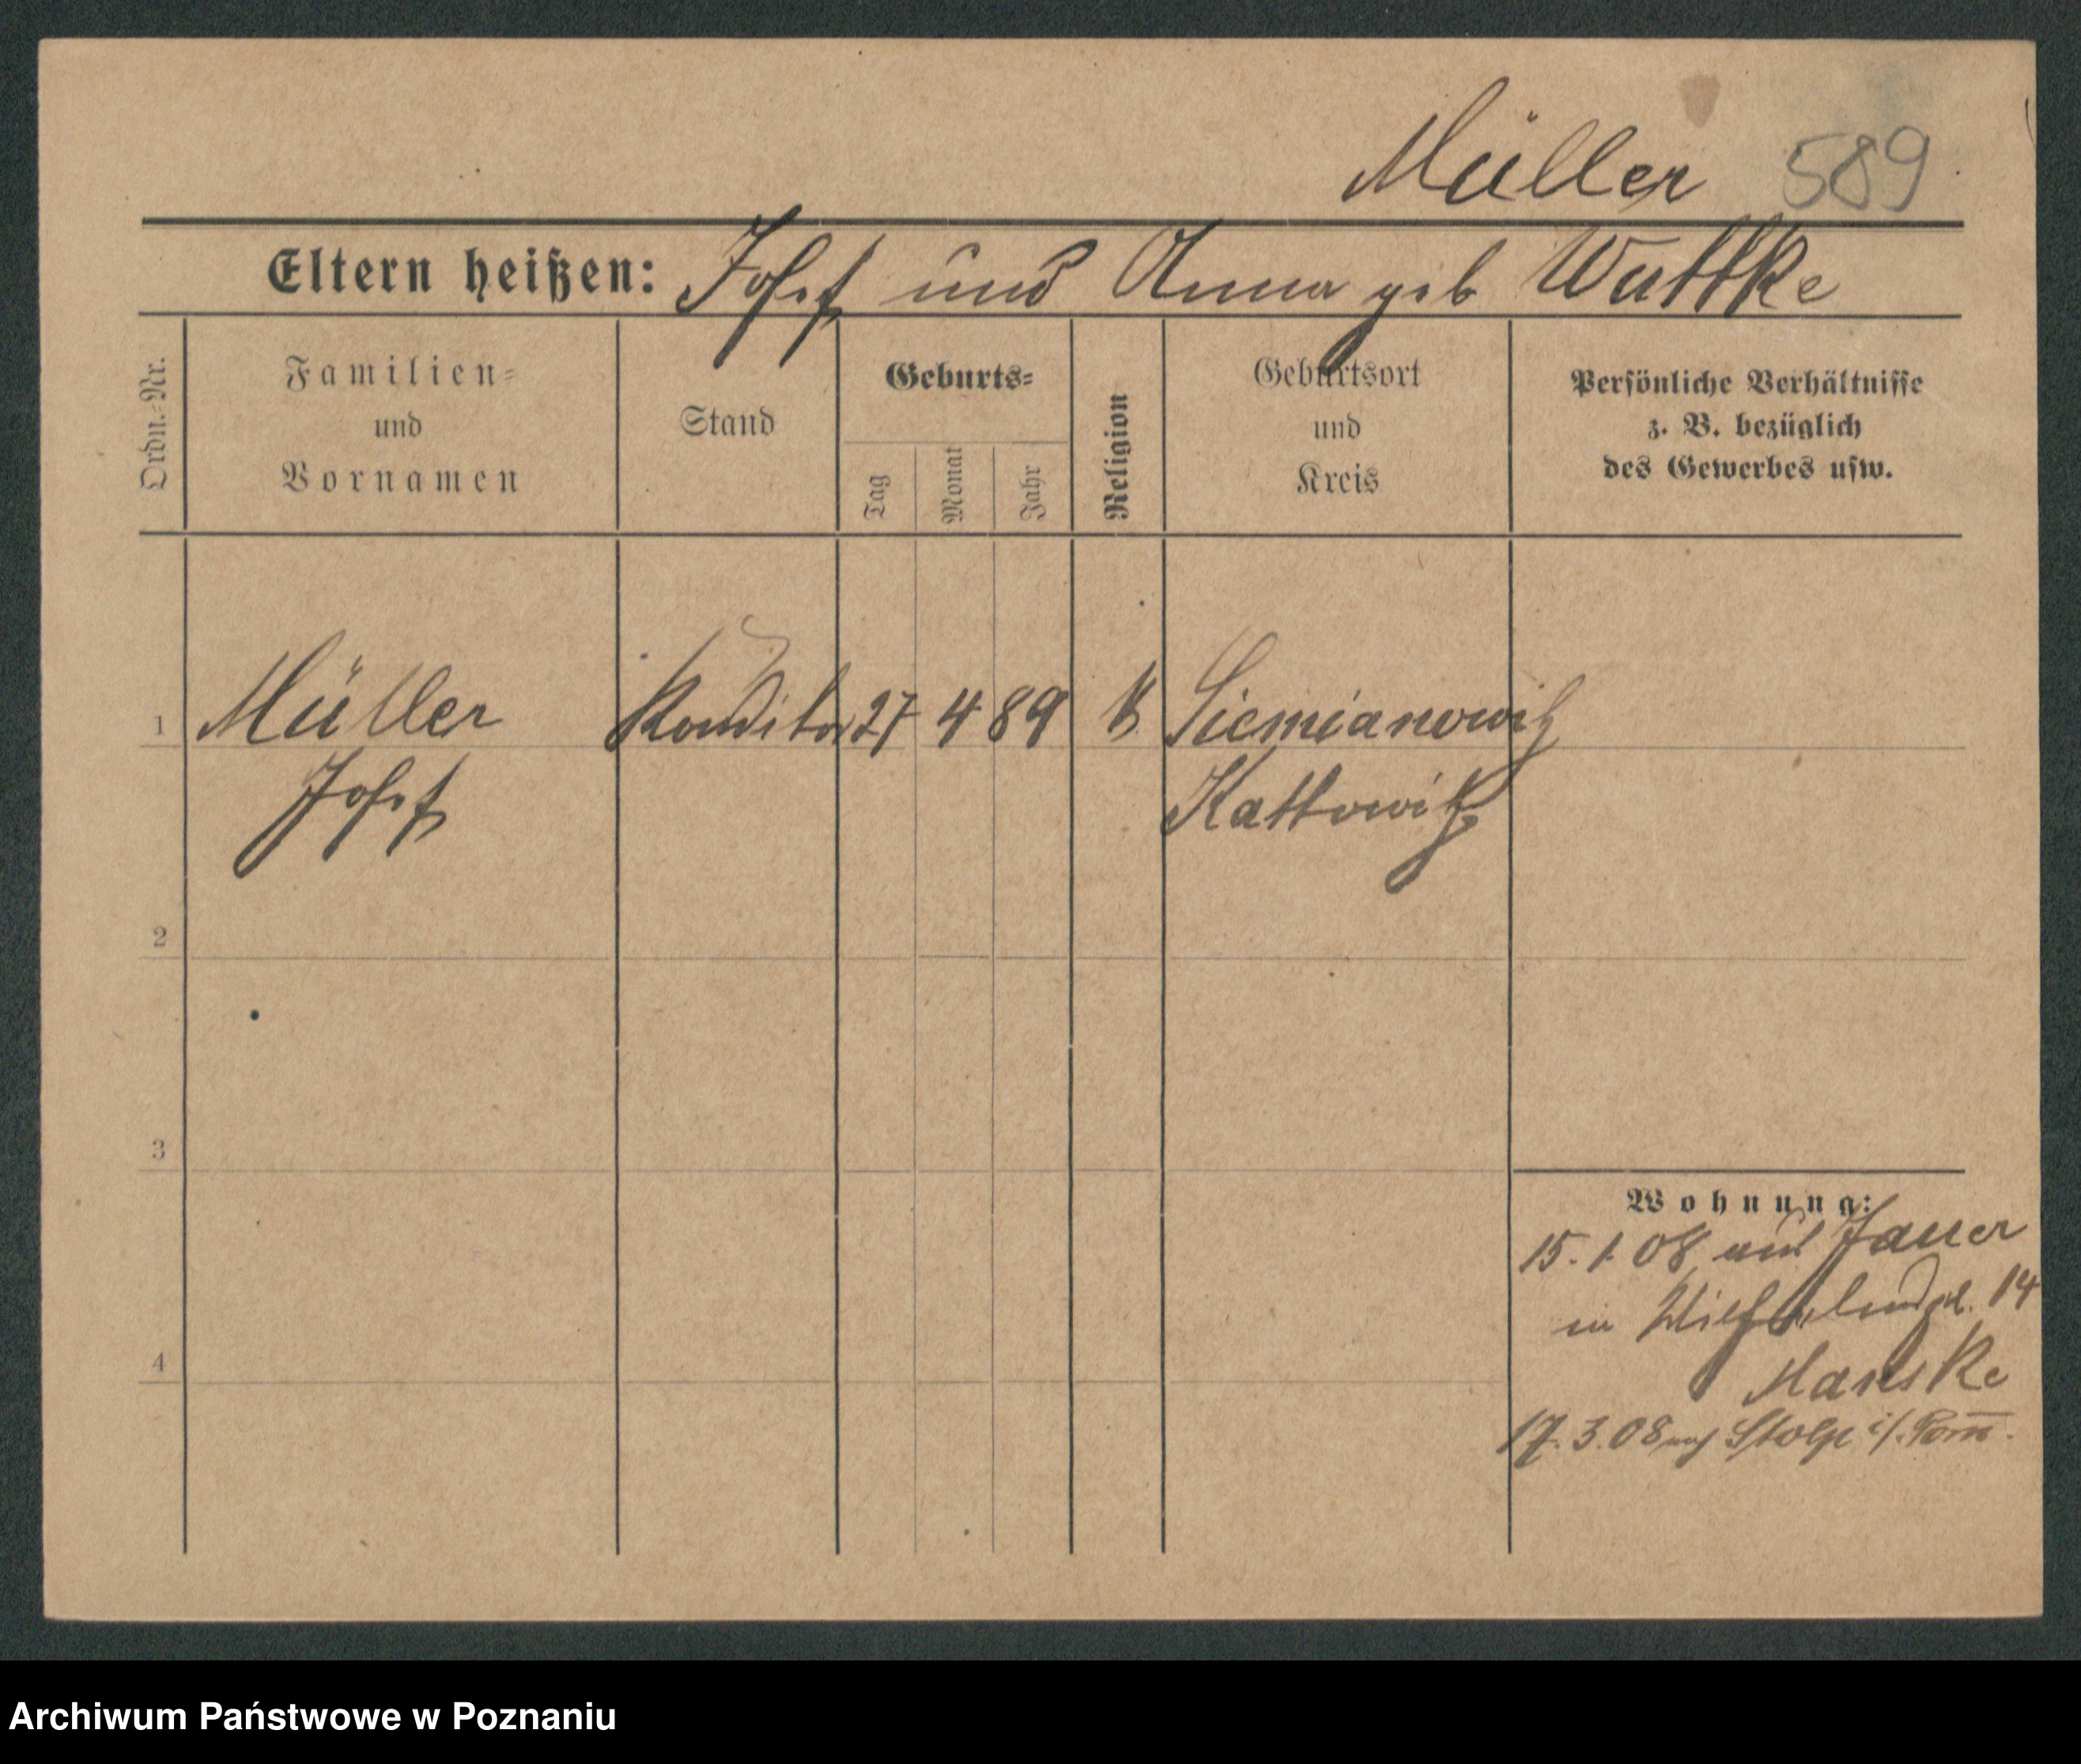 Müller 589
Eltern heißen: Josef und Anna geb Wuttke
Ordn.-Nr.
Familien-
und
Vornamen
Stand
Geburts-
Tag
Monat
Jahr
Religion
Geburtsort
und
Kreis
Persönliche Verhältnisse
z. B. bezüglich
des Gewerbes usw.
1 Müller Konditor 27 4 89 k Siemianowitz
Josef Kattowitz
2
3
Wohnung:
15.1.08 aus Jauer
in 14
4
Manske
17.3.08 nach Stolp i/. Pom̄.
Archiwum Państwowe w Poznaniu